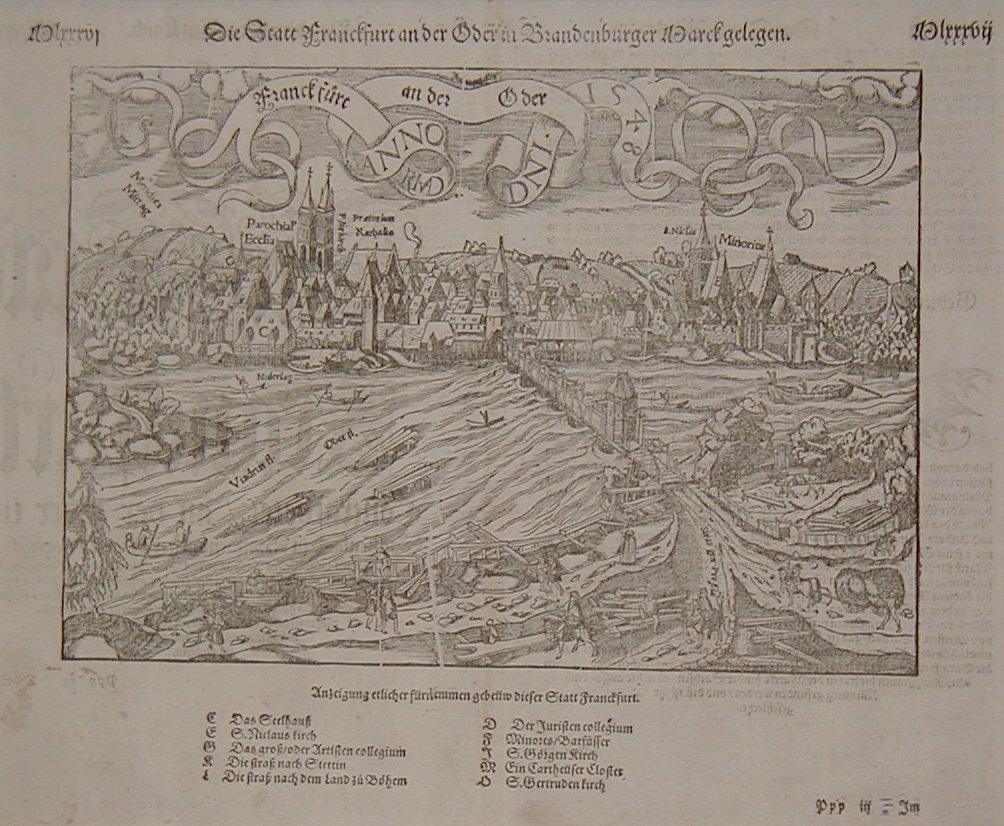 Mlxxxvj
Die Statt Franckfurt an der Oder in Brandenburger Marck gelegen.
Mlxxxvij
Franckfurt an der Oder 1548
ANNO
DNI.
RMD
Meridies
Mittag
Parochial
Ecclia
Pretorium
Rathauß
S. Niclas
Minores
C
Niderlag
Viadrus fl.
Oder fl.
Anzeigung etlicher fürnemmen gebeüw dieser Statt Franckfurt.
C Das Seelhauß
E S. Niclaus kirch
G Das groß/oder Artisten collegium
K Die straß nach Stettin
L Die straß nach dem Land zů Böhem
D Der Juristen collegium
F Minores/Barfůsser
J S. Görgen Kirch
M Ein Cartheüser Closter
O S. Gertruden kirch
Ppp iij = Jm